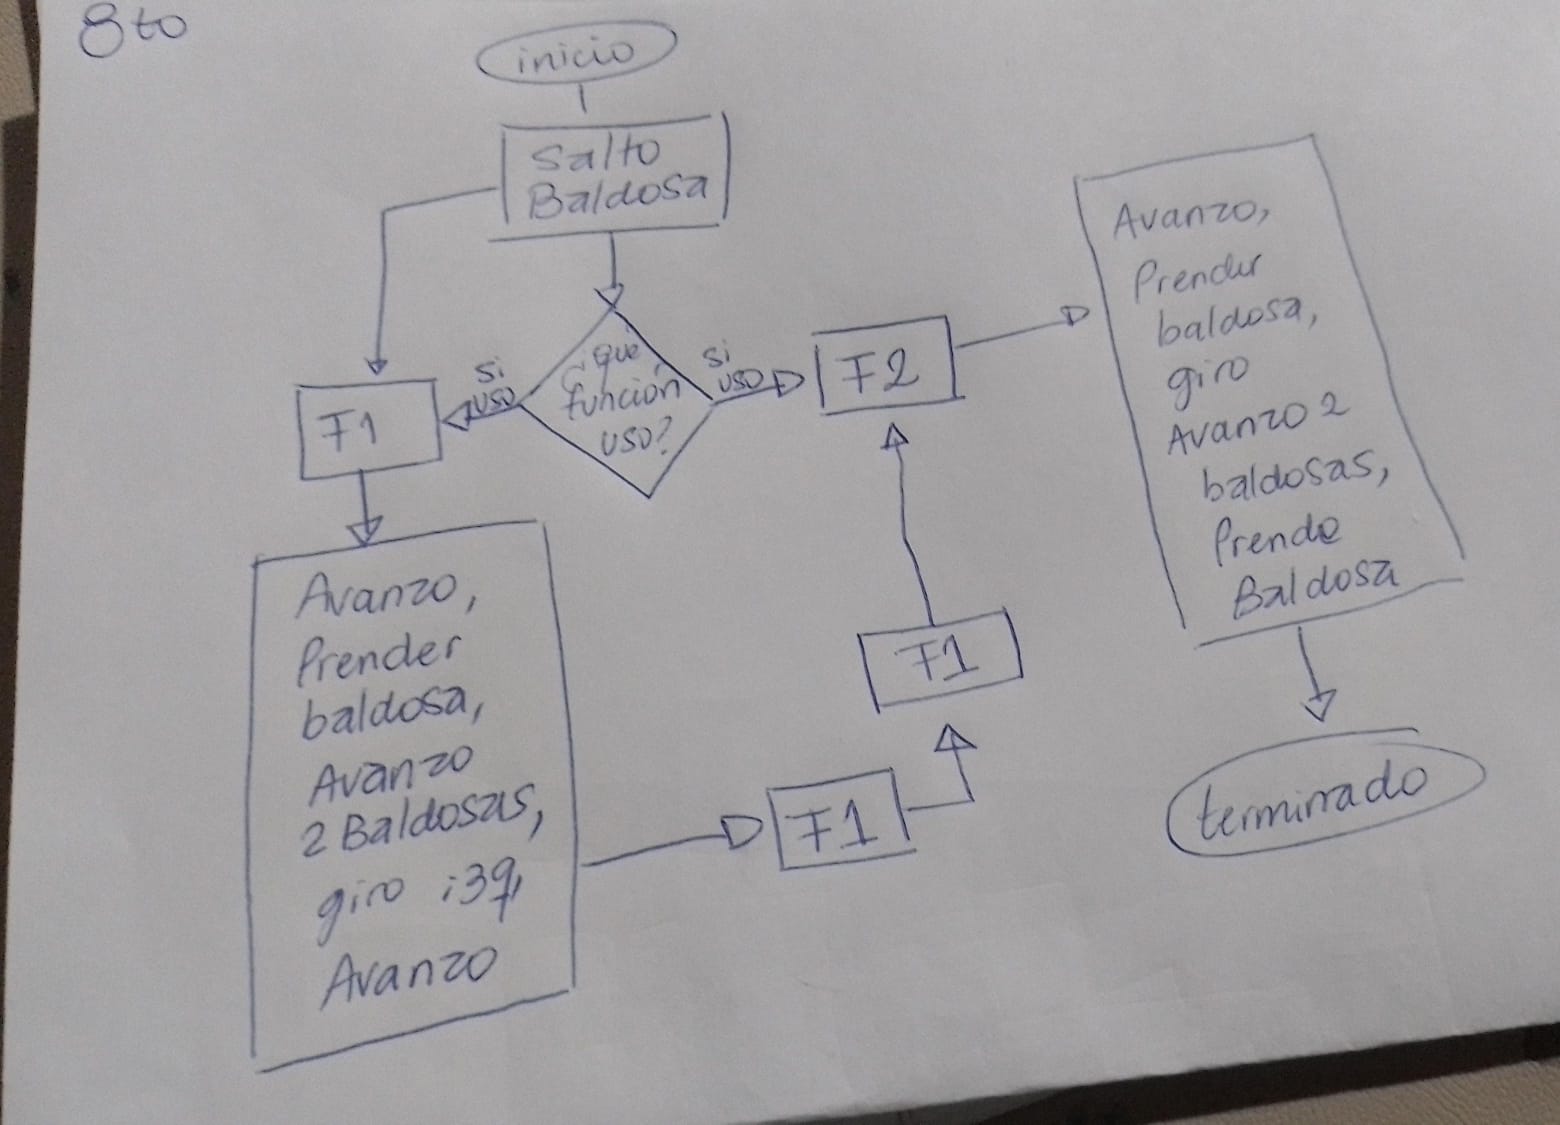 8to
inicio
Salto
Baldosa
¿que
función
uso?
Si
uso
Si
uso
F1
F2
Avanzo,
Prender
baldosa,
Avanzo
2 Baldosas,
giro izq,
Avanzo
F1
F1
Avanzo,
Prender
baldosa,
giro
Avanzo 2
baldosas,
Prende
Baldosa
terminado